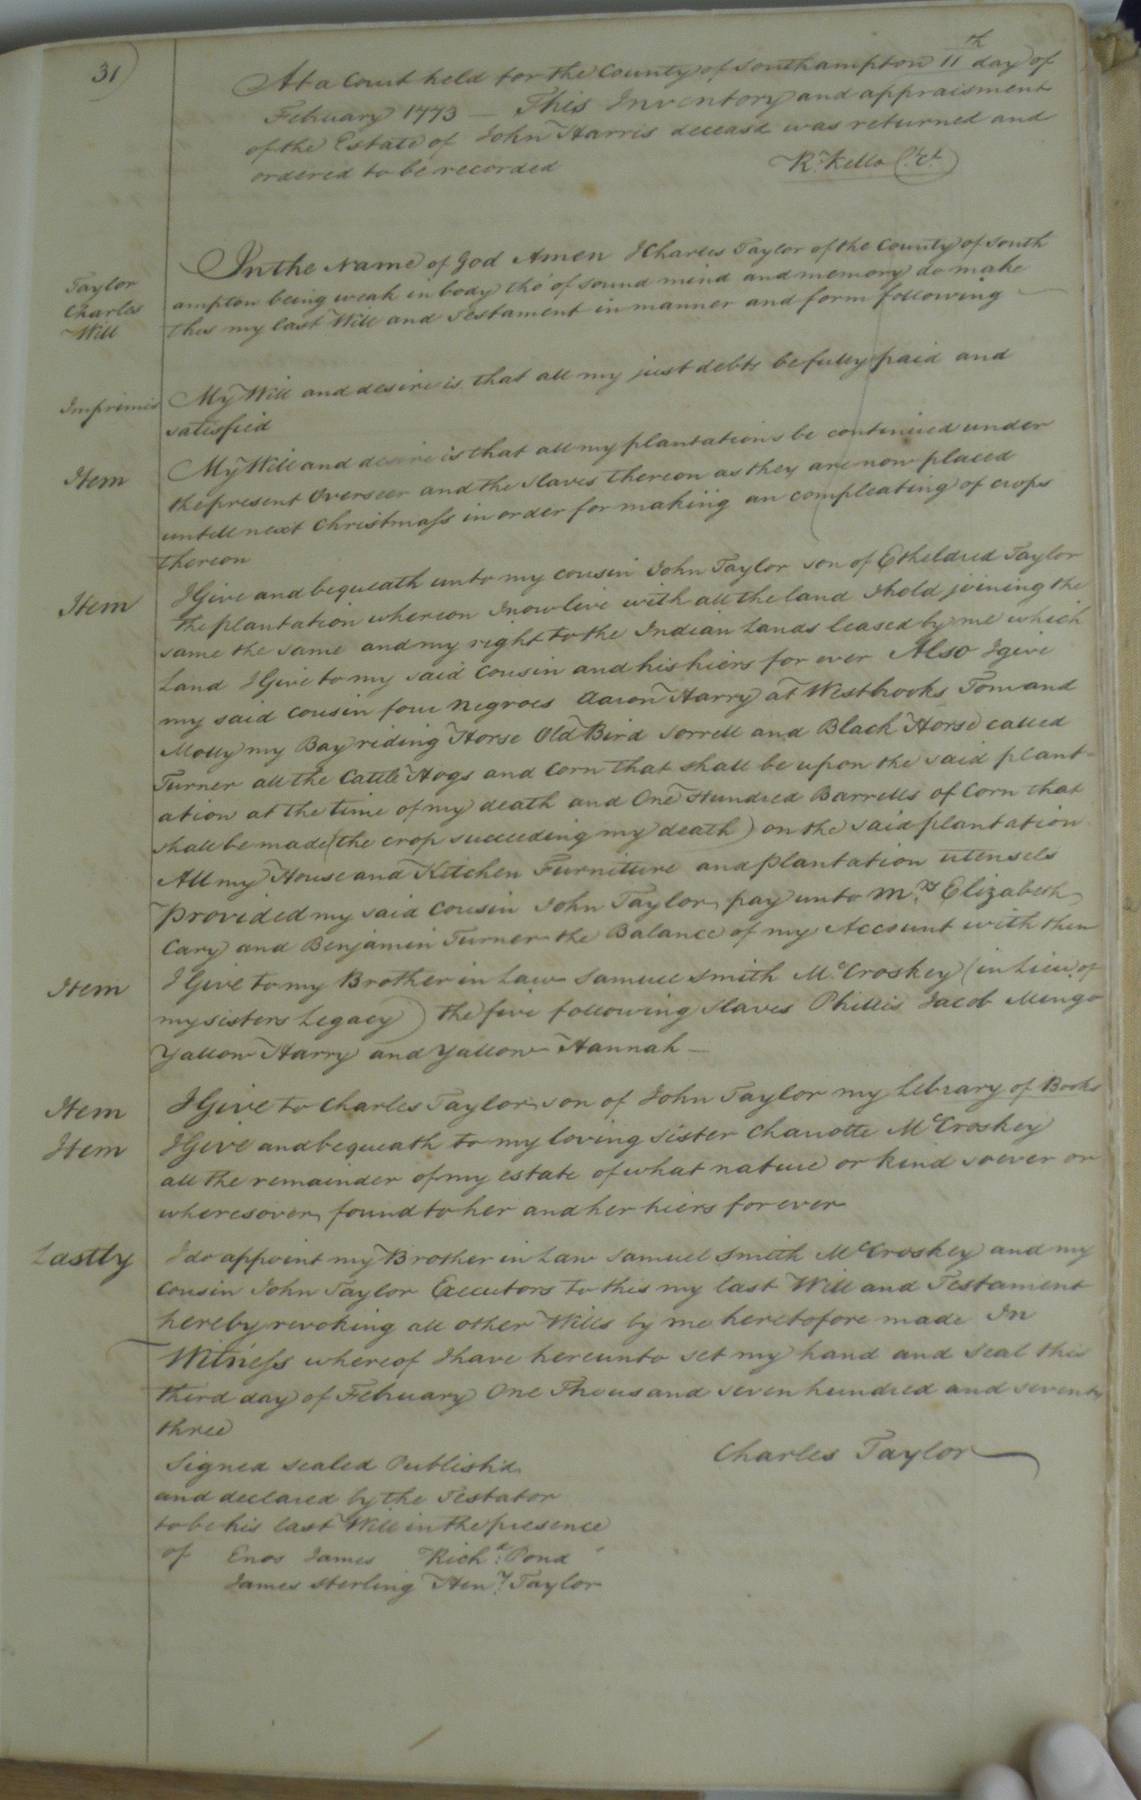 31
At a Court held for the County of Southampton 11th day of
February 1773 — This Inventory and appraisment
of the Estate of John Harris deceasd was returned and
ordered to be recorded
R. Kello Ct. Ct.
Taylor
Charles
Will
In the Name of God Amen I Charles Taylor of the County of South
ampton being weak in body tho' of sound mind and memory do make
this my last Will and Testament in manner and form following —
Imprimis My Will and desire is that all my just debts be fully paid and
satisfied
Item My Will and desire is that all my plantations be continued under
the present Overseer and the Slaves thereon as they are now placed
untill next Christmass in order for making an compleating of crops
thereon
Item I Give and bequeath unto my cousin John Taylor son of Etheldred Taylor
the plantation whereon I now live with all the land I hold joining the
same the same and my right to the Indian Lands leased by me which
Land I Give to my said Cousin and his hiers for ever Also I give
my said Cousin four Negroes Aaron Harry at Westbrooks Tom and
Molly my Bay riding Horse Old Bird Sorrell and Black Horse called
Turner all the Cattle Hogs and Corn that shall be upon the said plant-
ation at the time of my death and One Hundred Barrells of Corn that
shall be made (the crop succeeding my death) on the said plantation
All my House and Kitchen Furniture and plantation utensels
provided my said Cousin John Taylor pay unto Mrs. Elizabeth
Cary and Benjamin Turner the Balance of my Account with them
Item I Give to my Brother in Law Samuel Smith McCroskey (in Lieu of
my sisters Legacy) the five following Slaves Phillis Jacob Mingo
Yallow Harry and Yallow Hannah —
Item I Give to Charles Taylor son of John Taylor my Library of Books
Item I Give and bequeath to my loving Sister Charlotte McCroskey
all the remainder of my estate of what nature or kind soever or
wheresover found to her and her hiers for ever
Lastly I do appoint my Brother in Law Samuel Smith McCroskey and my
cousin John Taylor Executors to this my last Will and Testament
hereby revoking all other Wills by me heretofore made In
Witness whereof I have hereunto set my hand and Seal this
third day of February One Thousand seven hundred and seventy
three
Charles Taylor
Signed sealed Publish'd
and declared by the Testator
to be his last Will in the presence
of Enos James Richd. Pond
James Sterling Heny. Taylor